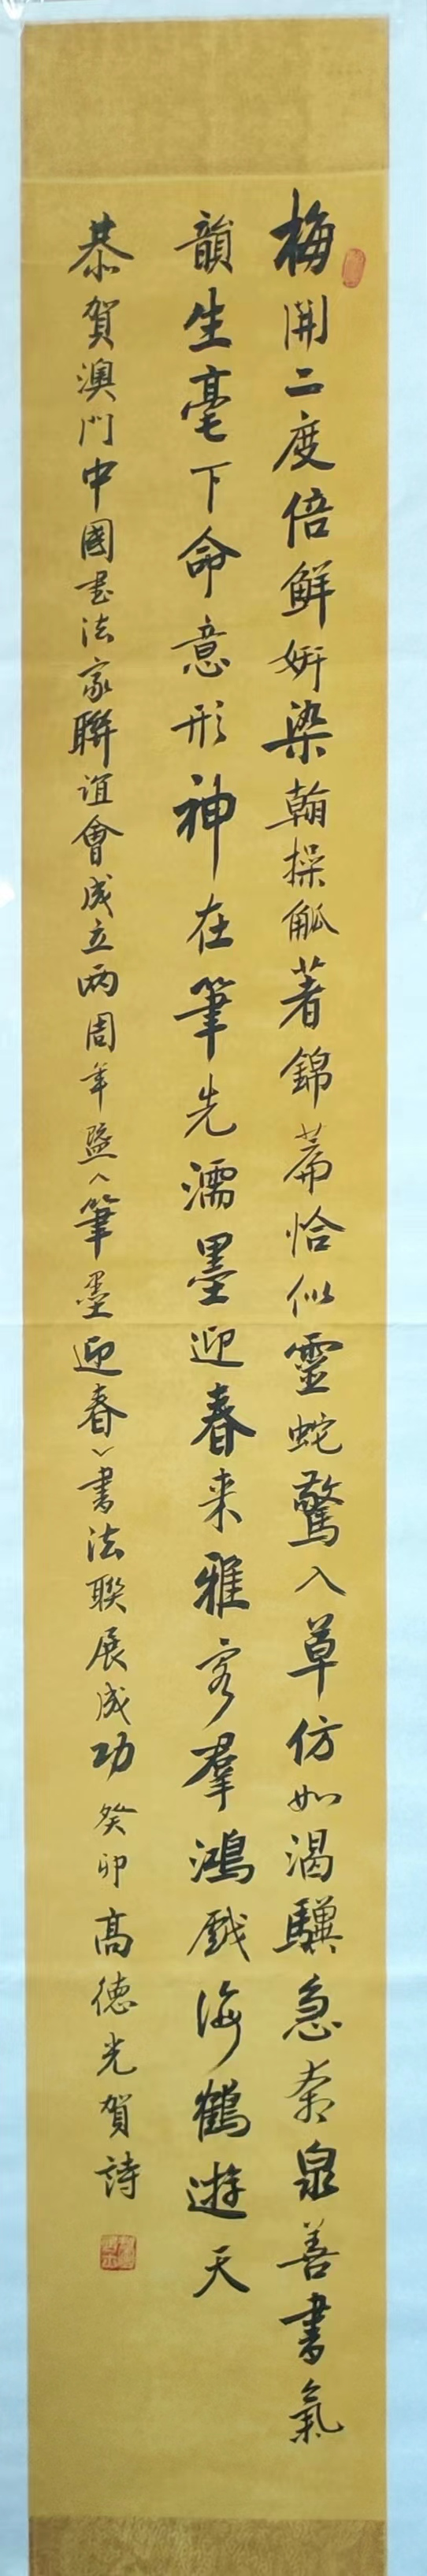 梅開二度倍鮮妍染翰操觚著錦篇恰似靈蛇驚入草仿如渴驥急奔泉善書氣
韻生毫下命意形神在筆先濡墨迎春来雅客羣鴻戲海鶴遊天
恭賀澳門中國書法家聯誼會成立兩周年暨〈筆墨迎春〉書法聯展成功 癸卯 高德光賀詩